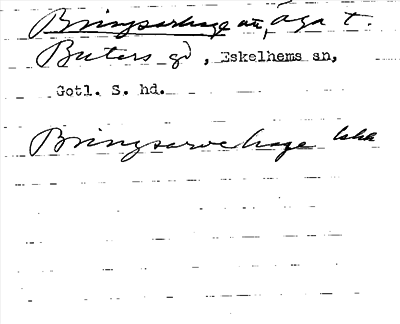 Bringsarhage än, Äga t.
Buters gd, Eskelhems sn,
Gotl. S. hd.
Bringsarve hage